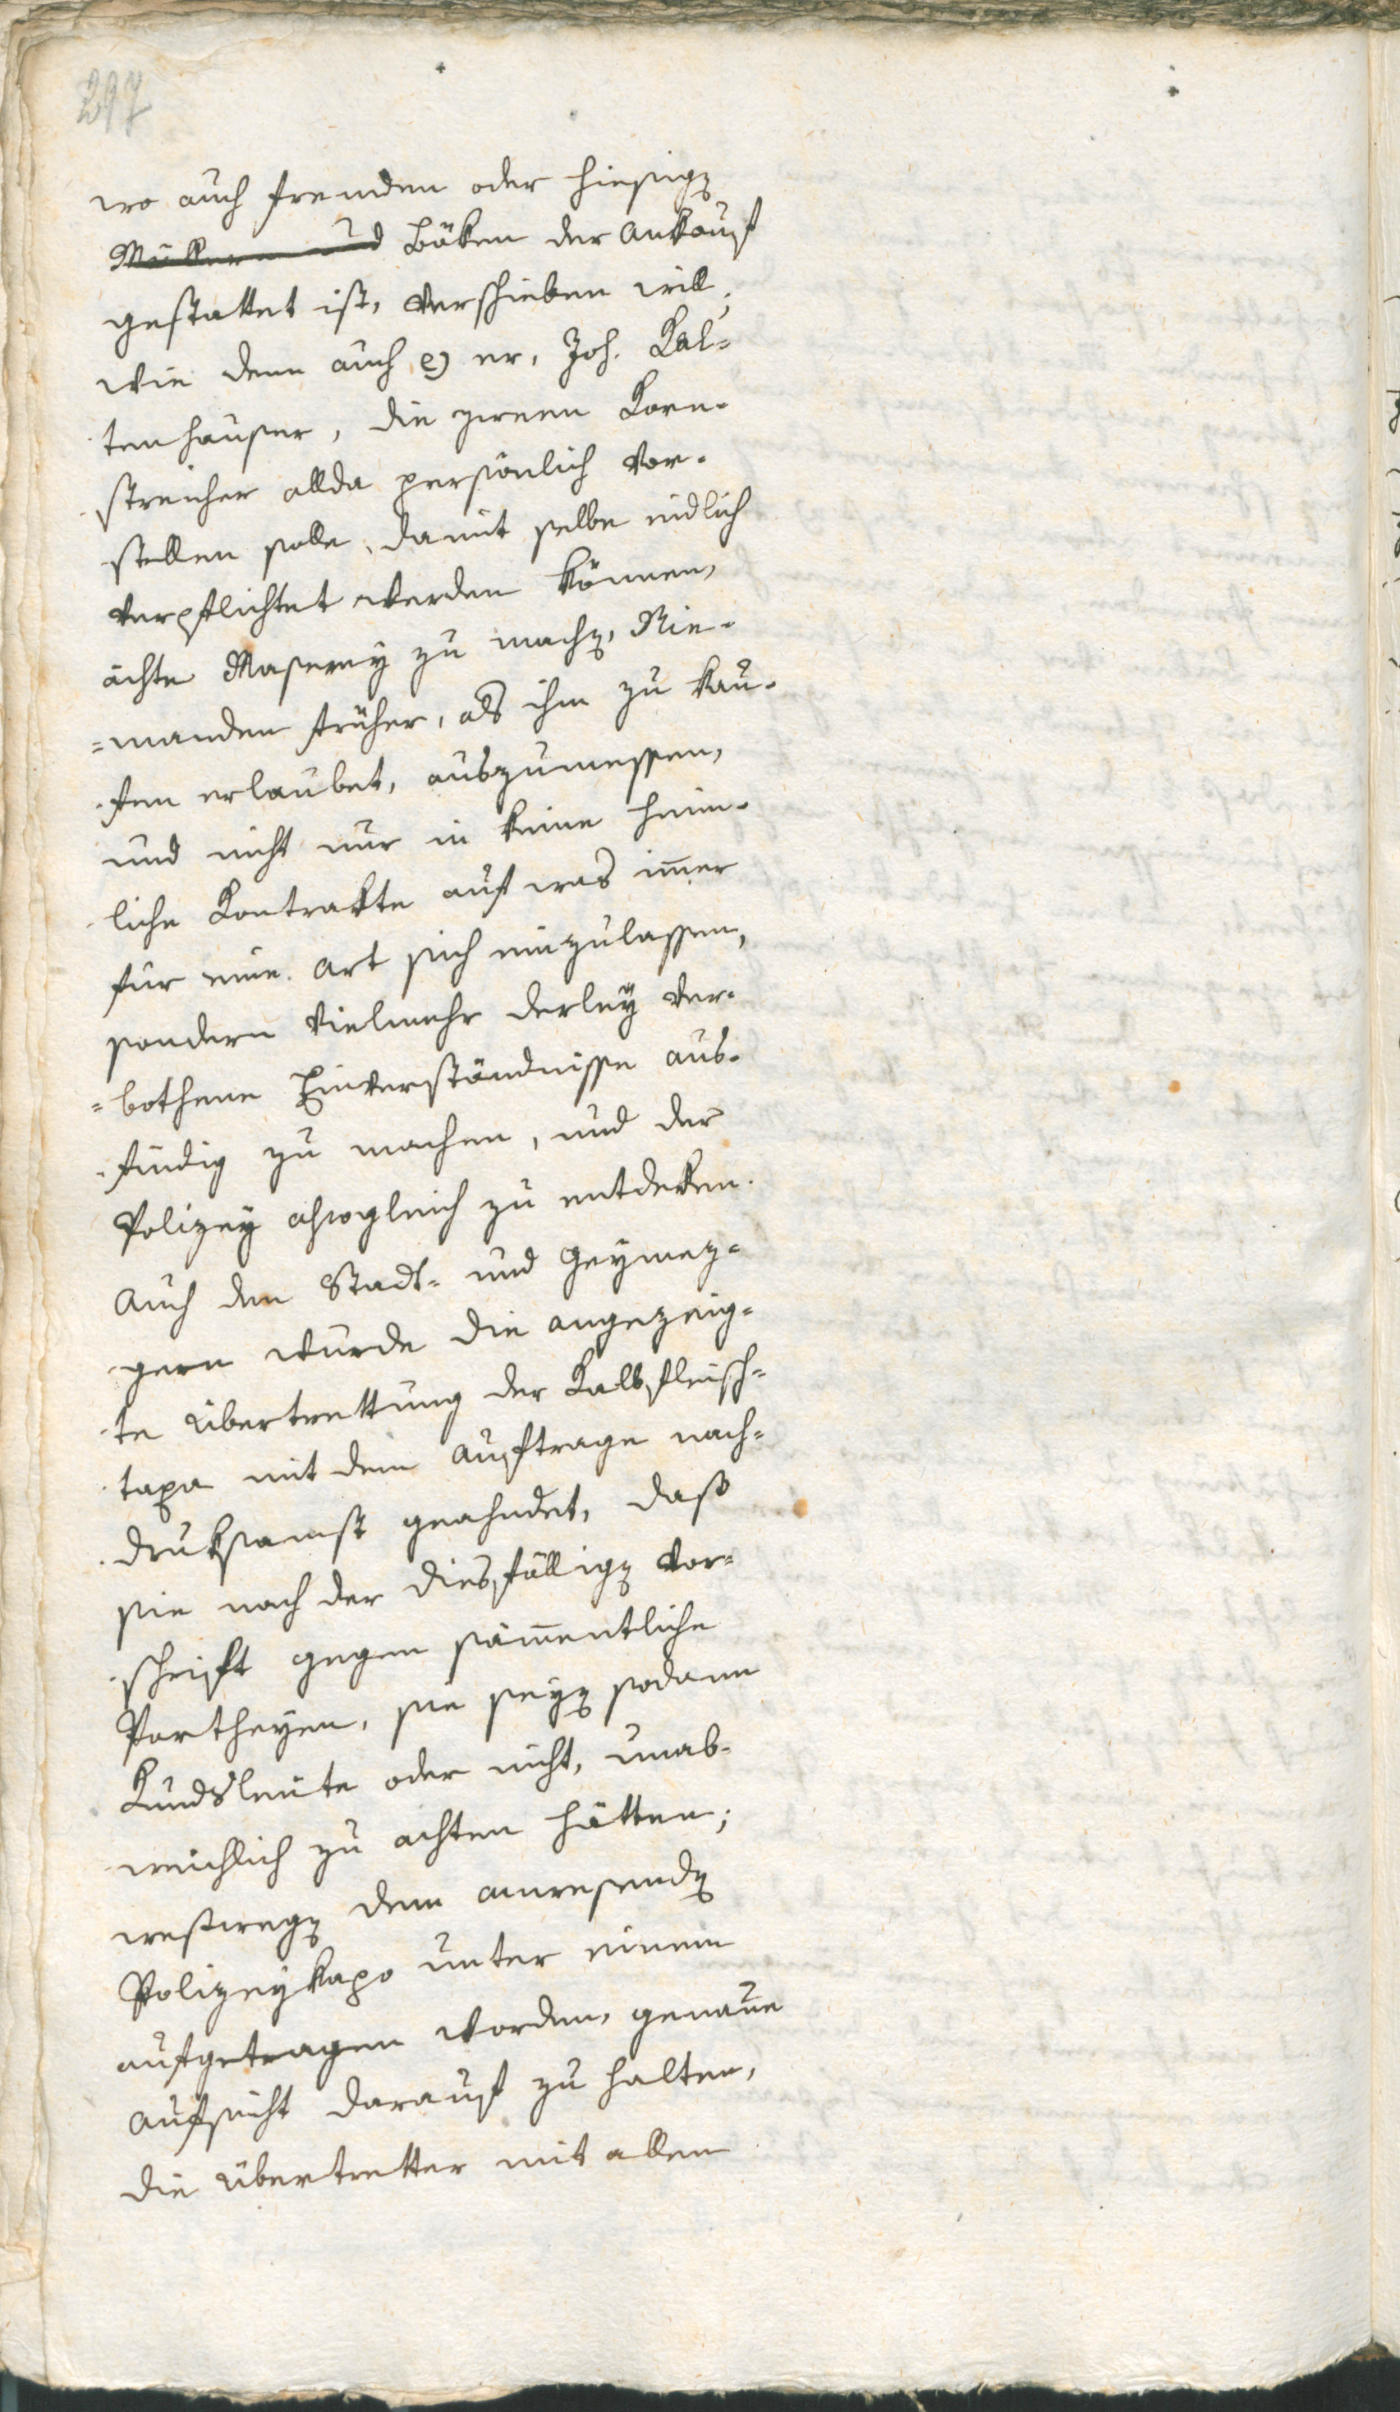 297
wo auch fremden oder hiesigen
Müllern und Böken der Ankauf
gestattet ist, verschieben will,
wie dann auch e) er, Joh. Kal-
tenhauser, die zween Korn-
streicher allda persönlich vor-
stellen solle, damit selbe eidlich
verpflichtet werden können,
ächte Maserey zu machen, Nie-
=manden früher, als ihm zu kau-
fen erlaubet, auszumessen,
und nicht nur in keine heim-
liche Kontrakte auf was immer
für eine Art sich einzulassen,
sondern vielmehr derley ver-
=bothene Einverständnisse aus-
findig zu machen, und der
Polizey alsogleich zu entdeken.
Auch den Stadt- und Geymez-
gern wurde die angezeig-
te Übertrettung der Kalbfleisch-
taxa mit dem Auftrage nach-
druksamst geahndet, daß
sie nach der diesfälligen Vor-
schrift gegen sämentliche
Partheyen, sie seyen sodann
Kundsleute oder nicht, unab-
weichlich zu achten hätten;
weswegen dem anwesenden
Polizeykapo unter einem
aufgetragen worden, genaue
Aufsicht darauf zu halten,
die Übertretter mit allem